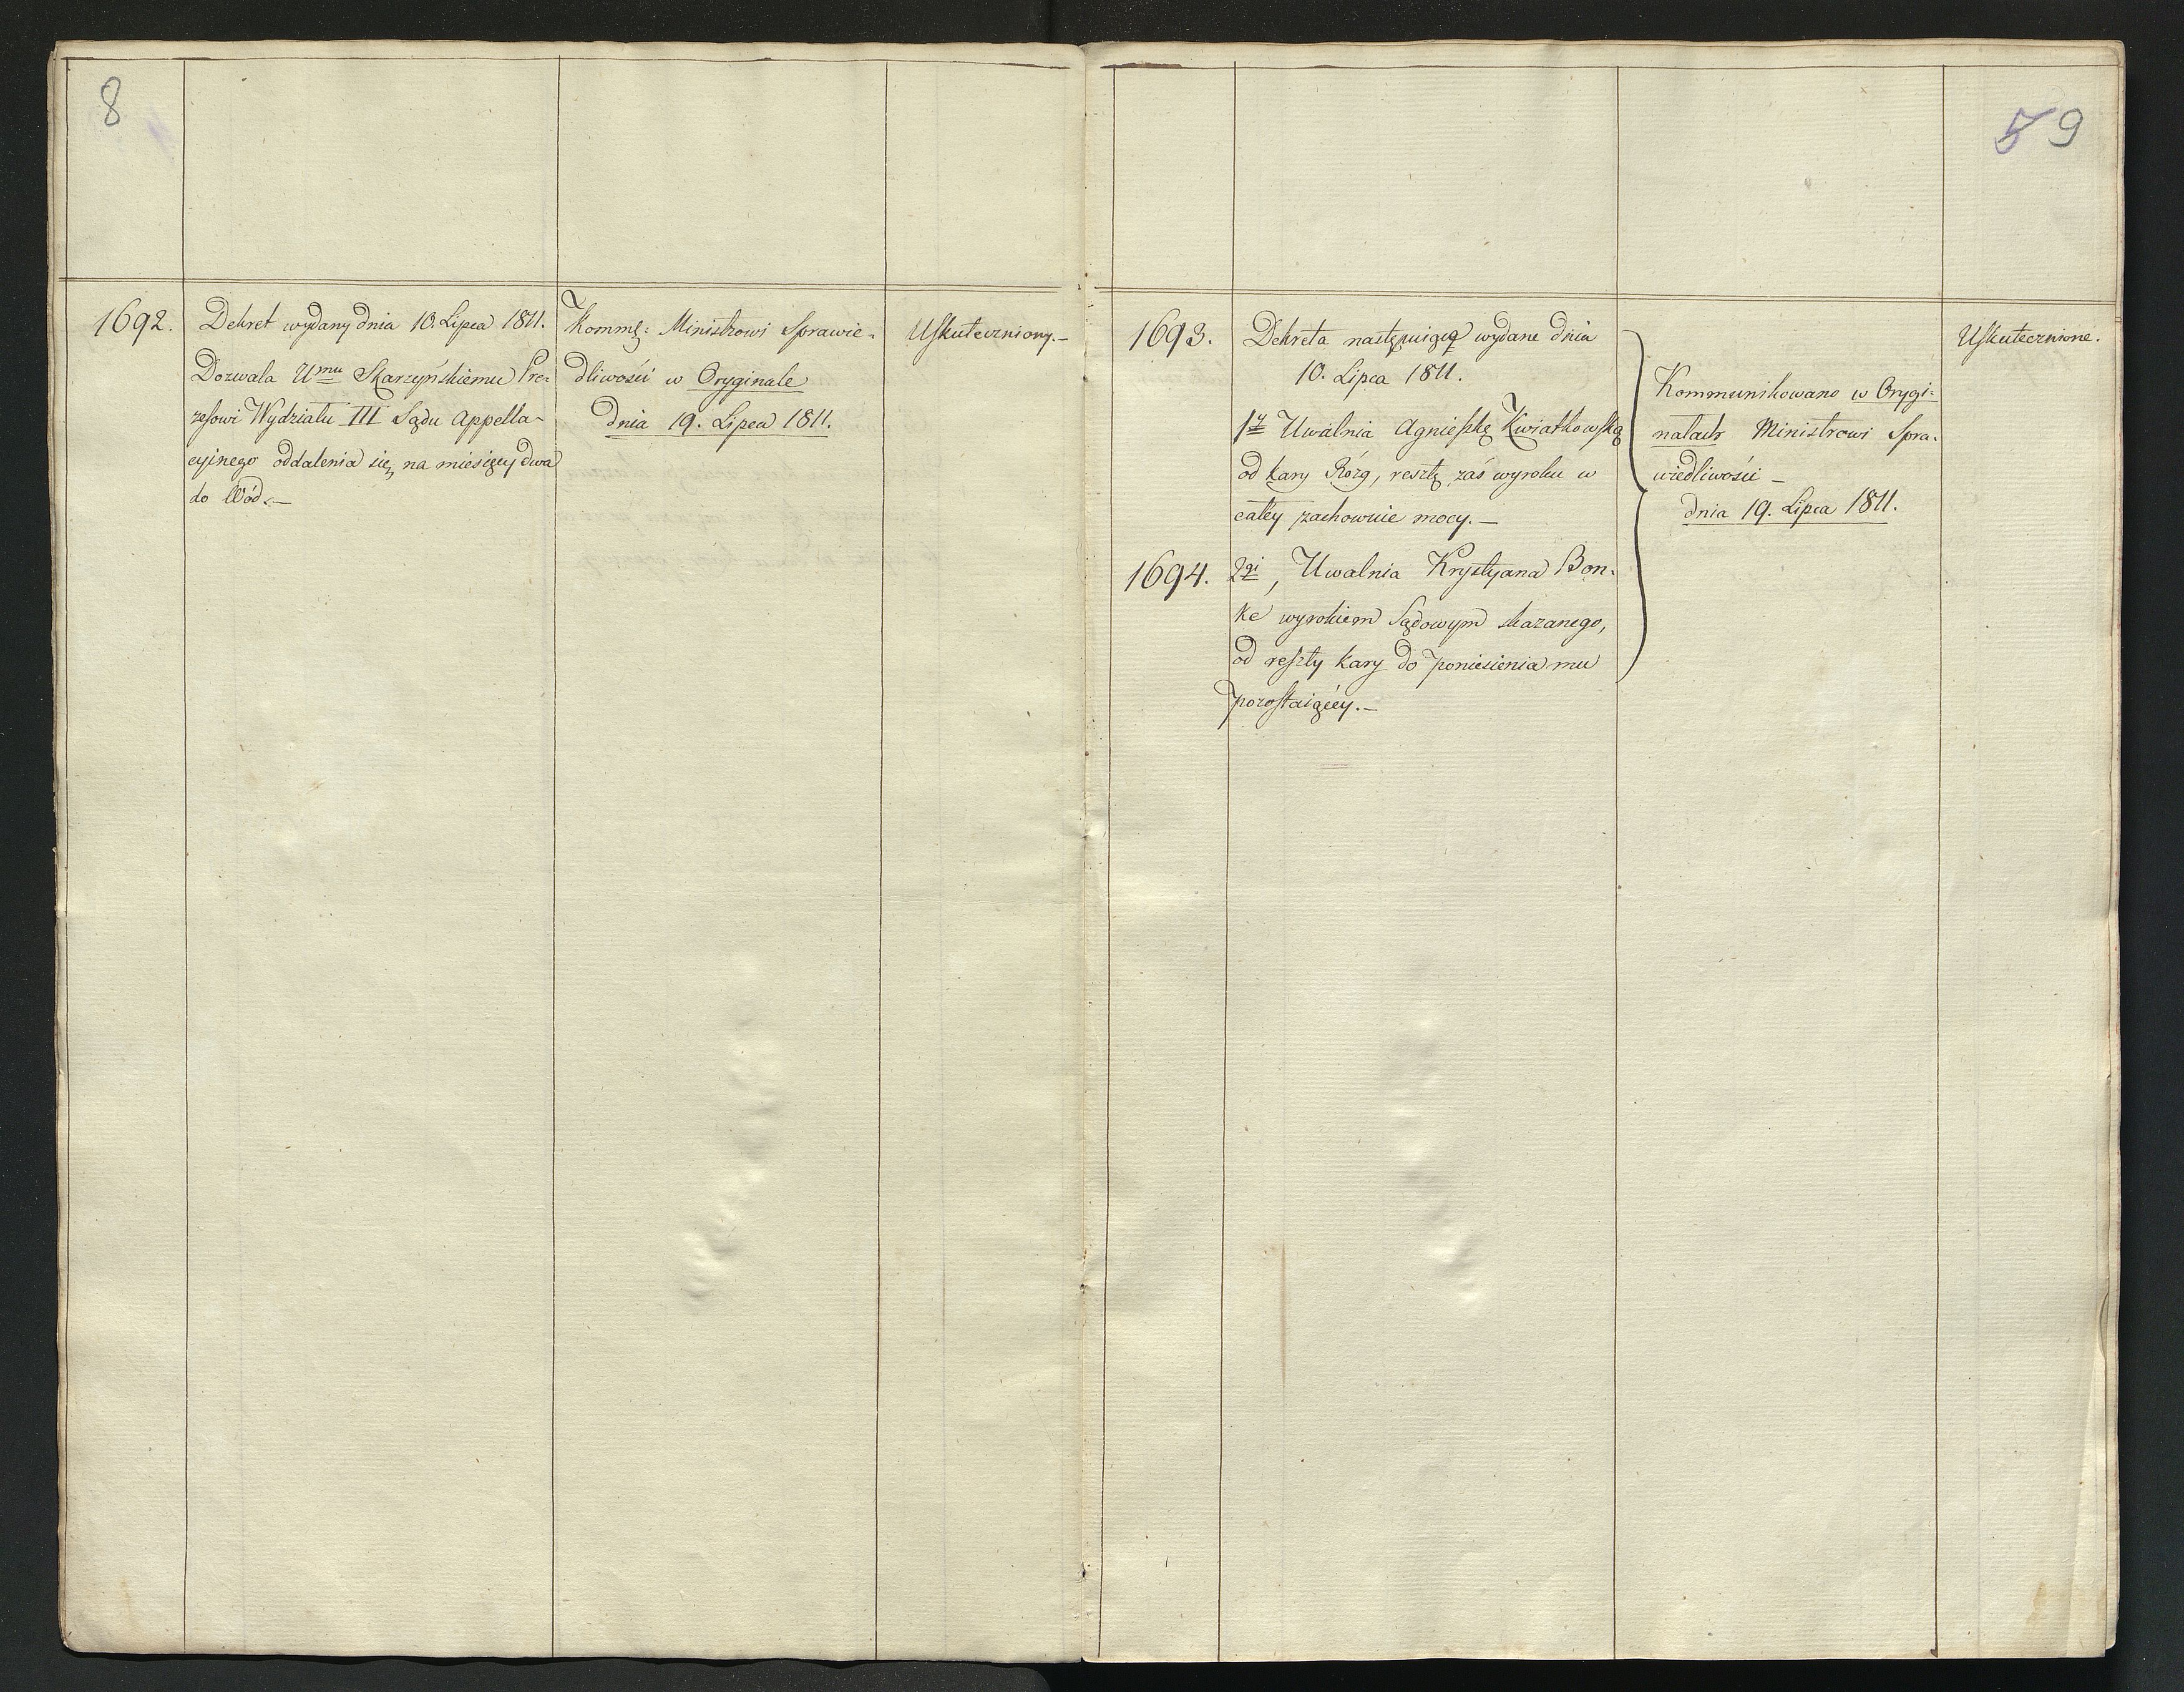 8
1692.
Dekret wydany dnia 10. Lipca 1811.
Dozwala Umu Skarzyńskiemu Pre-
zesowi Wydziału III Sądu Appella-
cyinego oddalenia się na miesięcy dwa
do Wód.—
Kommę: Ministrowi Sprawie-
dliwości w Oryginale
dnia 19. Lipca 1811.
Uskuteczniony.—
5 9
1693.
Dekreta następuiące wydane dnia
10. Lipca 1811.
1y Uwalnia Agnieszkę Kwiatkowską
od kary Rózg, resztę zaś wyroku w
całey zachowuie mocy.—
1694.
2gi, Uwalnia Krystyana Bon-
ke wyrokiem Sądowym skazanego,
od reszty kary do poniesienia mu
pozostaiącéy.—
Kommunikowano w Orygi-
nałach Ministrowi Spra-
wiedliwości —
dnia 19. Lipca 1811.
Uskutecznione.